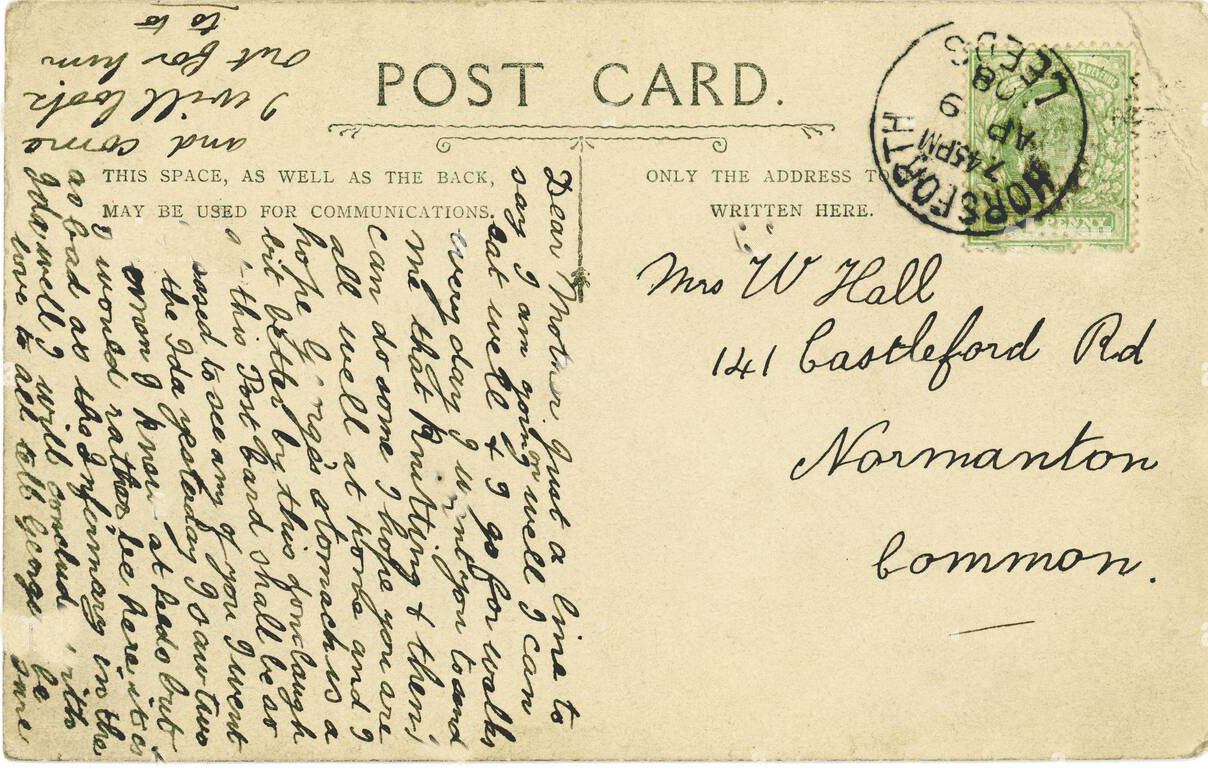 POST CARD.
THIS SPACE, AS WELL AS THE BACK,
MAY BE USED FOR COMMUNICATIONS.
ONLY THE ADDRESS TO
WRITTEN HERE.
HORSFORTH
7.45PM
AP 9
08
LEEDS
PENNY
Mrs W Hall
141 Castleford Rd
Normanton
Common.
Dear Mother Just a line to
say I am going on well I can
eat well & I go for walks
every day I want you to send
me that Knitting & then I
can do some I hope you are
all well at home and I
hope George's stomach is a
bit better by this
this Post Card shall be so
to see any of you I went
the Ida yesterday I saw two
men I know at Leeds but
I would rather be here it is
as bad as the Infirmary in the
Ida well I will conclud with
love to all tell George be sure
and come
I will look
out for him
to to